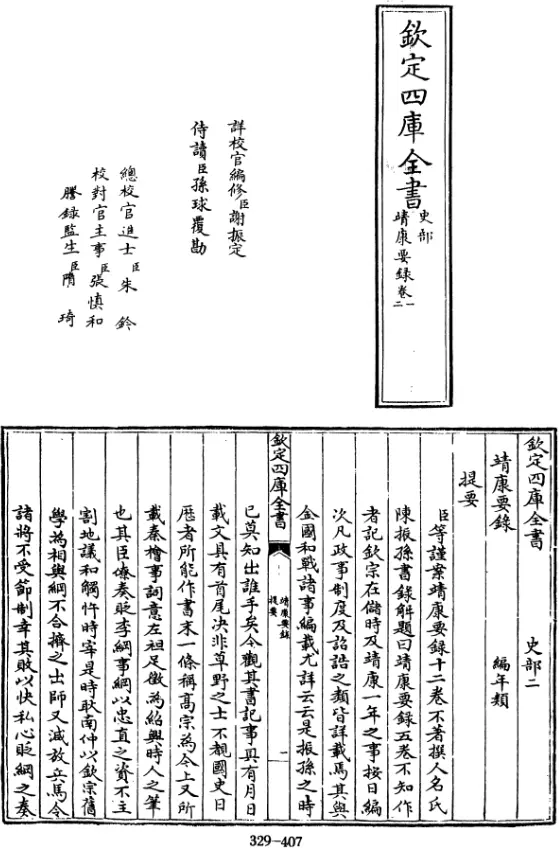 欽定四庫全書
史部
靖康要錄卷一
二
詳校官編修臣謝振定
侍讀臣孫球覆勘
總校官進士臣朱鈐
校對官主事臣張慎和
謄錄監生臣隋琦
欽定四庫全書
史部二
靖康要錄
編年類
提要
臣等謹案靖康要錄十二卷不著撰人名氏
陳振孫書錄解題曰靖康要錄五卷不知作
者記欽宗在儲時及靖康一年之事按日編
次凡政事制度及詔誥之類皆詳載焉其與
金國和戰諸事編載尤詳云云是振孫之時
欽定四庫全書
靖康要錄
提要
一
已莫知出誰手矣今觀其書記事具有月日
載文具有首尾決非草野之士不覩國史日
歷者所能作書末一條稱高宗為今上又所
載秦檜事詞意左袒足徵為紹興時人之筆
也其臣僚奏貶李綱事綱以忠直之資不主
割地議和觸忤時宰是時耿南仲以欽宗舊
學為相與綱不合擠之出師又減放兵馬令
諸將不受節制幸其敗以快私心貶綱之奏
329-407